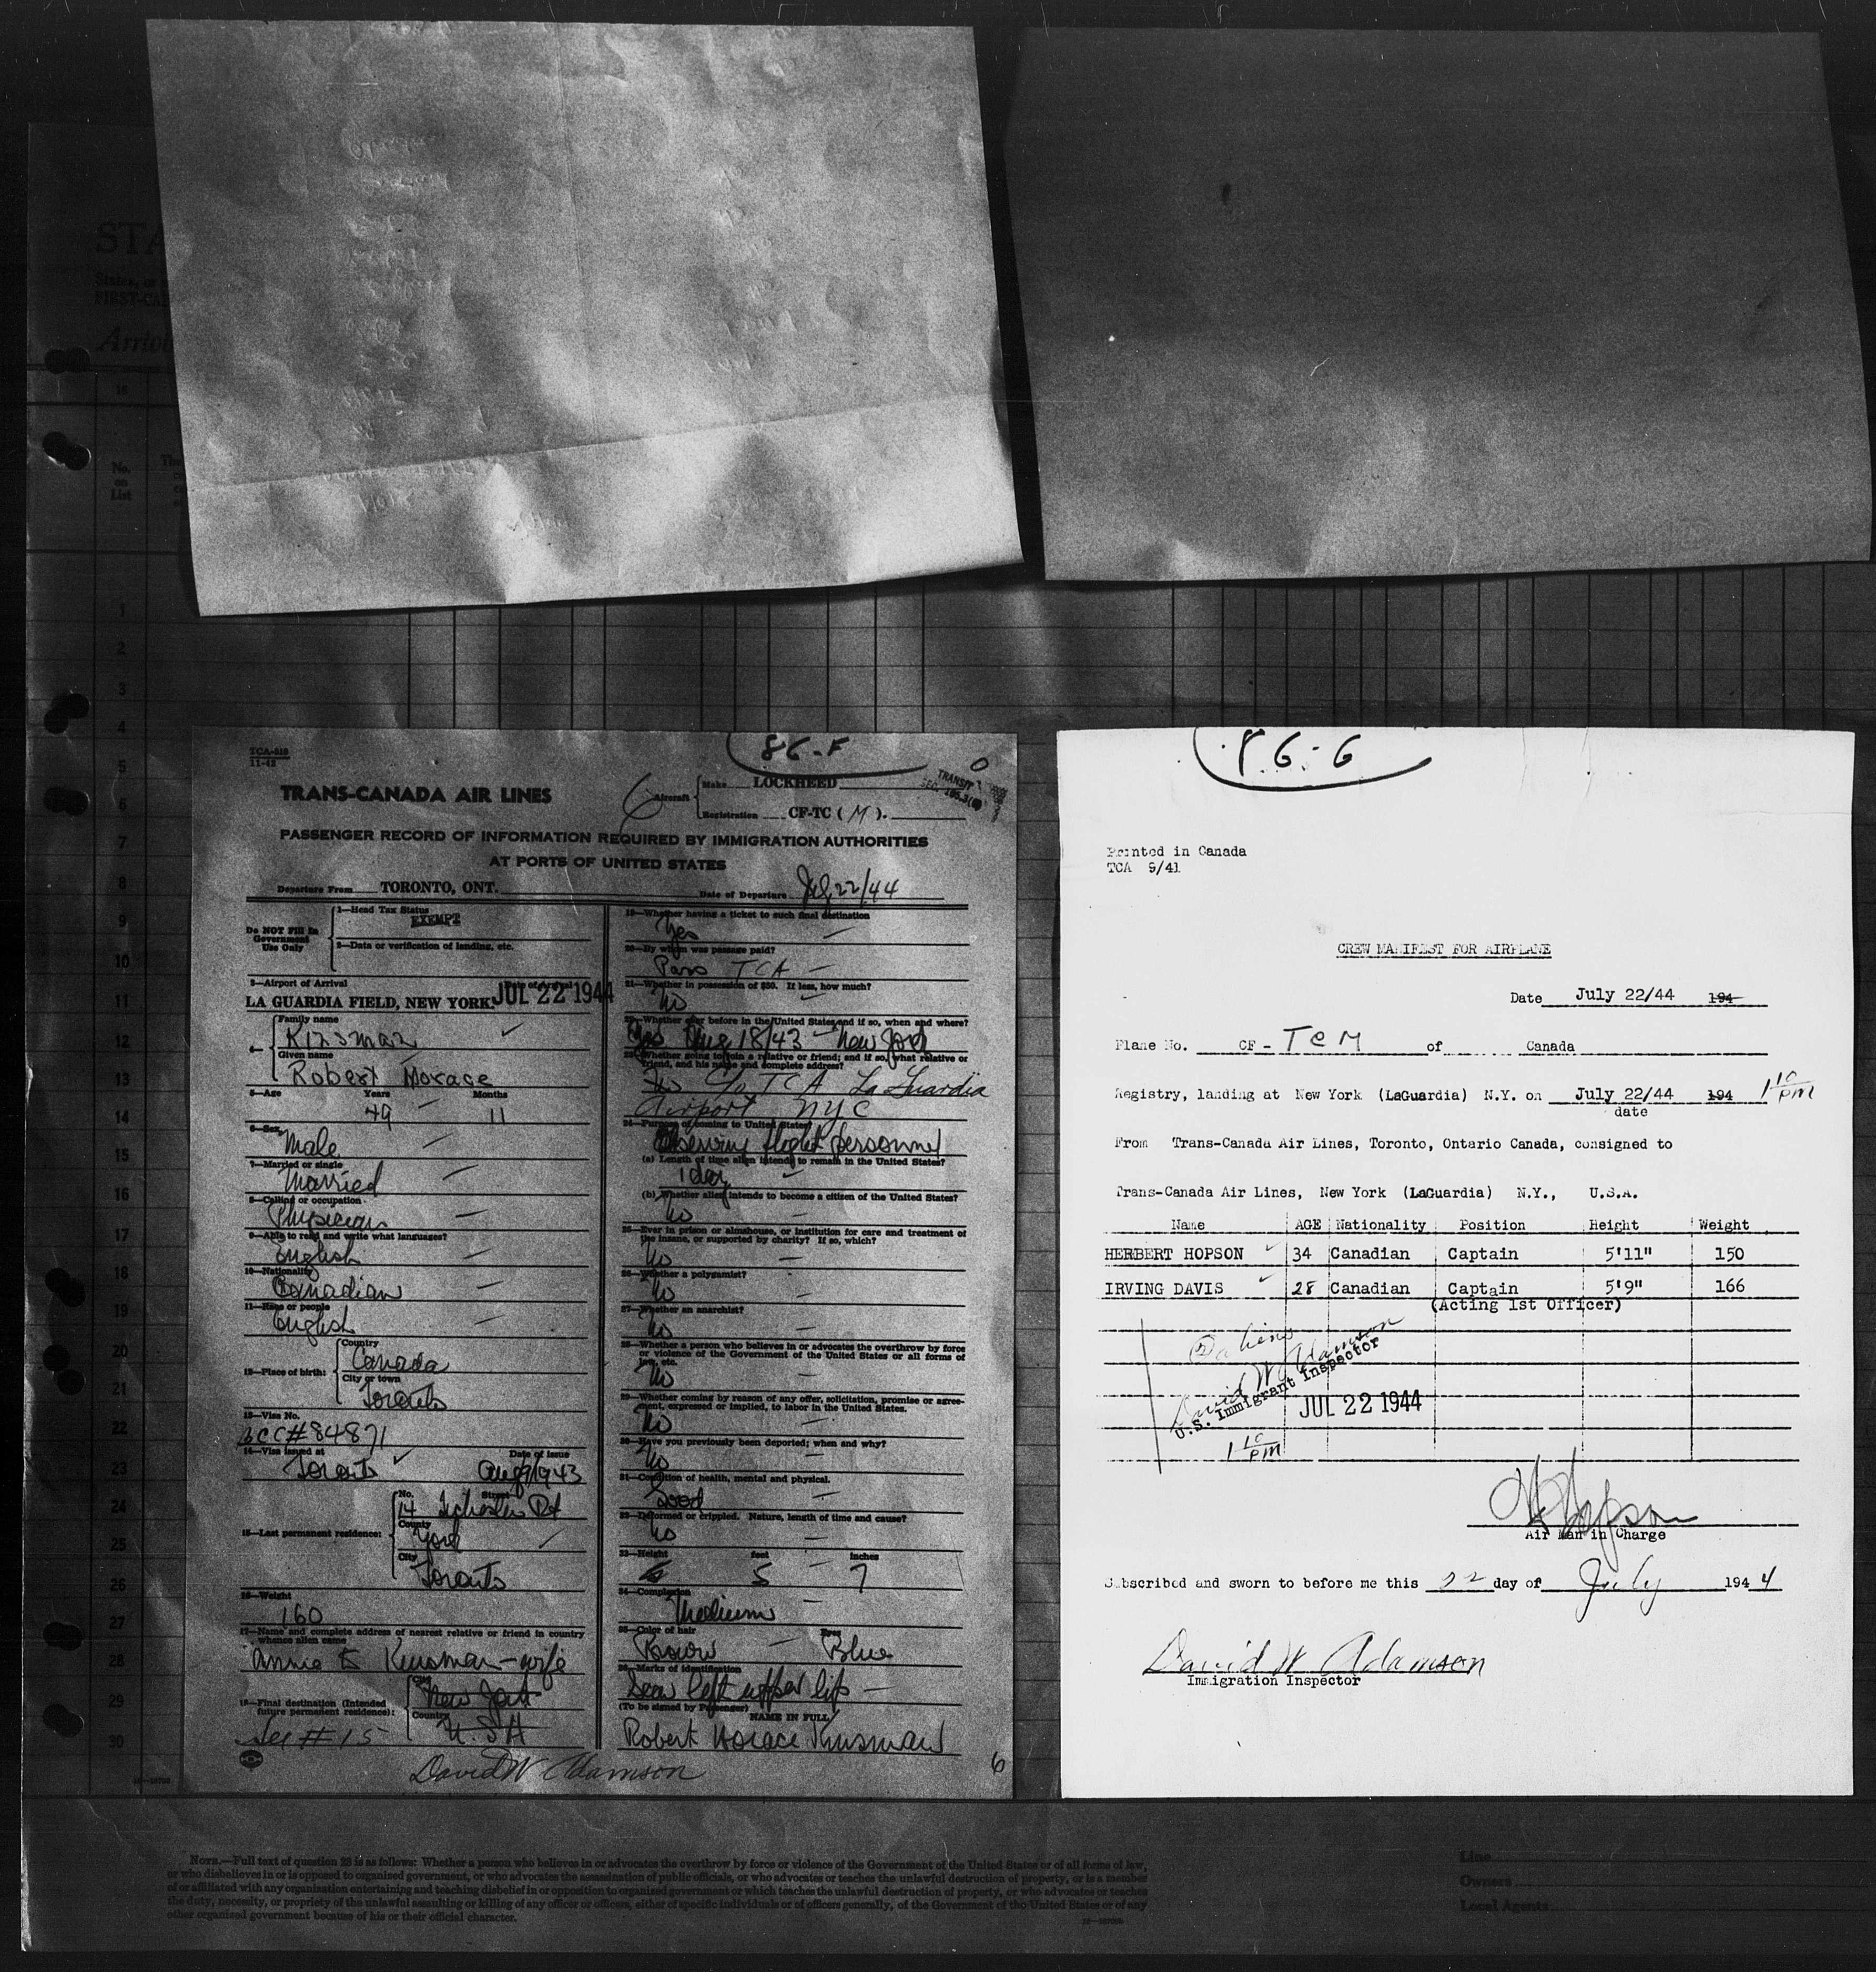 STA
States, or
FIRST-CA
Arrival
16
No.
on
List
1
2
3
4
5
6
7
8
9
10
11
12
13
14
15
16
17
18
19
20
21
22
23
24
25
26
27
28
29
30
86-F
TCA-818
11-42
TRANS-CANADA AIR LINES
6
Aircraft
Make LOCKHEED
Registration CF-TC (M).
TRANSIT
PASSENGER RECORD OF INFORMATION REQUIRED BY IMMIGRATION AUTHORITIES
AT PORTS OF UNITED STATES
Departure From TORONTO, ONT. Date of Departure July 22/44
Do NOT Fill in
Government
Use Only
1—Head Tax Status
EXEMPT
2—Data or verification of landing, etc.
3—Airport of Arrival Date of Arrival
LA GUARDIA FIELD, NEW YORK. JUL 22 1944
4—
Family name
Kinsman
Given name
Robert Horace
5—Age Years Months
49 11
6—Sex
Male
7—Married or single
Married
8—Calling or occupation
Physician
9—Able to read and write what languages?
English
10—Nationality
Canadian
11—Race or people
English
12—Place of birth:
Country
Canada
City or town
Toronto
13—Visa No.
BCC#84871
14—Visa issued at Date of issue
Toronto Aug 9/1943
15—Last permanent residence:
No. Street
14 Rd
County
York
City
Toronto
16—Weight
160
17—Name and complete address of nearest relative or friend in country
whence alien came
Annie E Kinsman - wife
18—Final destination (Intended
future permanent residence):
City
New York
Country
U.S.A
See #15
David W Adamson
19—Whether having a ticket to such final destination
Yes
20—By whom was passage paid?
Pass TCA
21—Whether in possession of $50. If less, how much?
No
22—Whether ever before in the United States and if so, when and where?
Yes Aug 18/43 - New York
23—Whether going to join a relative or friend; and if so, what relative or
friend, and his name and complete address?
No c/o TCA La Guardia
Airport NYC
24—Purpose of coming to United States?
Observing flight personnel
(a) Length of time alien intends to remain in the United States?
1 day
(b) Whether alien intends to become a citizen of the United States?
No
25—Ever in prison or almshouse, or institution for care and treatment of
the insane, or supported by charity? If so, which?
No
26—Whether a polygamist?
No
27—Whether an anarchist?
No
28—Whether a person who believes in or advocates the overthrow by force
or violence of the Government of the United States or all forms of
law, etc.
No
29—Whether coming by reason of any offer, solicitation, promise or agree-
ment, expressed or implied, to labor in the United States.
No
30—Have you previously been deported; when and why?
No
31—Condition of health, mental and physical.
Good
32—Deformed or crippled. Nature, length of time and cause?
No
33—Height feet inches
5 7
34—Complexion
Medium
35—Color of hair Eyes
Brown Blue
36—Marks of identification
Scar left upper lip
(To be signed by Passenger) NAME IN FULL
Robert Horace Kinsman
6
86-G
Printed in Canada
TCA 9/41
CREW MANIFEST FOR AIRPLANE
Date July 22/44 194
Plane No. CF - TCM of Canada
Registry, landing at New York (LaGuardia) N.Y. on July 22/44 194 1 10 PM
date
From Trans-Canada Air Lines, Toronto, Ontario Canada, consigned to
Trans-Canada Air Lines, New York (LaGuardia) N.Y., U.S.A.
Name AGE Nationality Position Height Weight
HERBERT HOPSON 34 Canadian Captain 5'11" 150
IRVING DAVIS 28 Canadian Captain 5'9" 166
(Acting 1st Officer)
David W Adamson
U.S. Immigrant Inspector
JUL 22 1944
1 10 PM
H Hopson
Air Man in Charge
Subscribed and sworn to before me this 22 day of July 1944
David W Adamson
Immigration Inspector
NOTE.—Full text of question 28 is as follows: Whether a person who believes in or advocates the overthrow by force or violence of the Government of the United States or of all forms of law,
or who disbelieves in or is opposed to organized government, or who advocates the assassination of public officials, or who advocates or teaches the unlawful destruction of property, or is a member
of or affiliated with any organization entertaining and teaching disbelief in or opposition to organized government or which teaches the unlawful destruction of property, or who advocates or teaches
the duty, necessity, or propriety of the unlawful assaulting or killing of any officer or officers, either of specific individuals or of officers generally, of the Government of the United States or of any
other organized government because of his or their official character.
Line
Owners
Local Agents